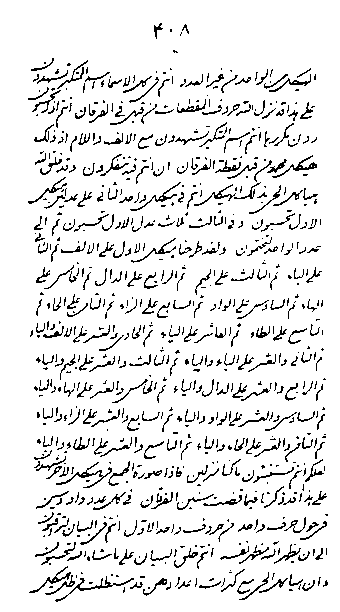 ٤٠٨
الهيكل الواحد من غير العدد انتم في كل الاسماء اسم المتكبر تشهدون
على بذا قد نزل الله حروف المقطعات من قبل في الفرقان انتم
انتم اسم المتكبر تشهدون مع الالف واللام اذ ذلك
هيكل محمد من قبل نقطة الفرقان ان انتم فيه تتفكرون وقد خلق الله
هياكل الحي بذلك الهيكل انتم في هيكل واحد الثاني على عدل هيكل
الاول تحسبون وفي الثالث ثلاث عدل الاول تحسبون ثم الى
عدد الواحد تختمون ولقد طرز هيكل الاول على الالف ثم الثاني
على الباء ثم الثالث على الجيم ثم الرابع على الدال ثم الخامس على
الهاء ثم السادس على الواو ثم السابع على الزاء ثم الثامن على الحاء ثم
التاسع على الطاء ثم العاشر على الياء ثم الحادي والعشر على الالف والياء
ثم الثاني والعشر على الباء والياء ثم الثالث والعشر على الجيم والياء
ثم الرابع والعشر على الدال والياء ثم الخامس والعشر على الهاء والياء ثم
السادس والعشر على الواو والياء ثم السابع والعشر على الزاء والياء
ثم الثامن والعشر على الحاء والياء ثم التاسع والعشر على الطاء والياء
لعلكم انتم تستنبئون ما كنا منزلين كاذا صورة الجمع في هيكل الآخر تشهدون
على بذا قد ذكرنا فيما قضت سنين الفرقان في كل عدد واو وسين
في حول حرف واحد من حروف واحد الاول انتم في البيان لترقبون
الى ان يظهر الله مظهر نفسه انتم خلق البيان على ما شاء الله لتحسبون
وان هياكل الحي مع كثرات اعدادهن قد استظلت في ظل هيكل